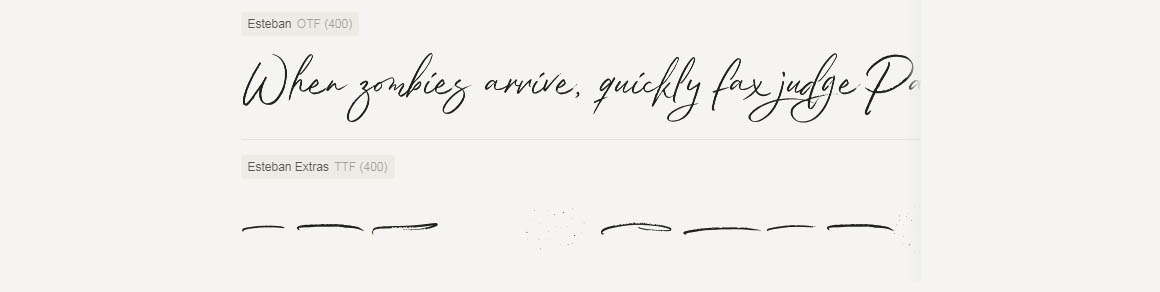 Esteban OTF (400)
When zombies arrive, quickly fax judge Pa
Esteban Extras TTF (400)